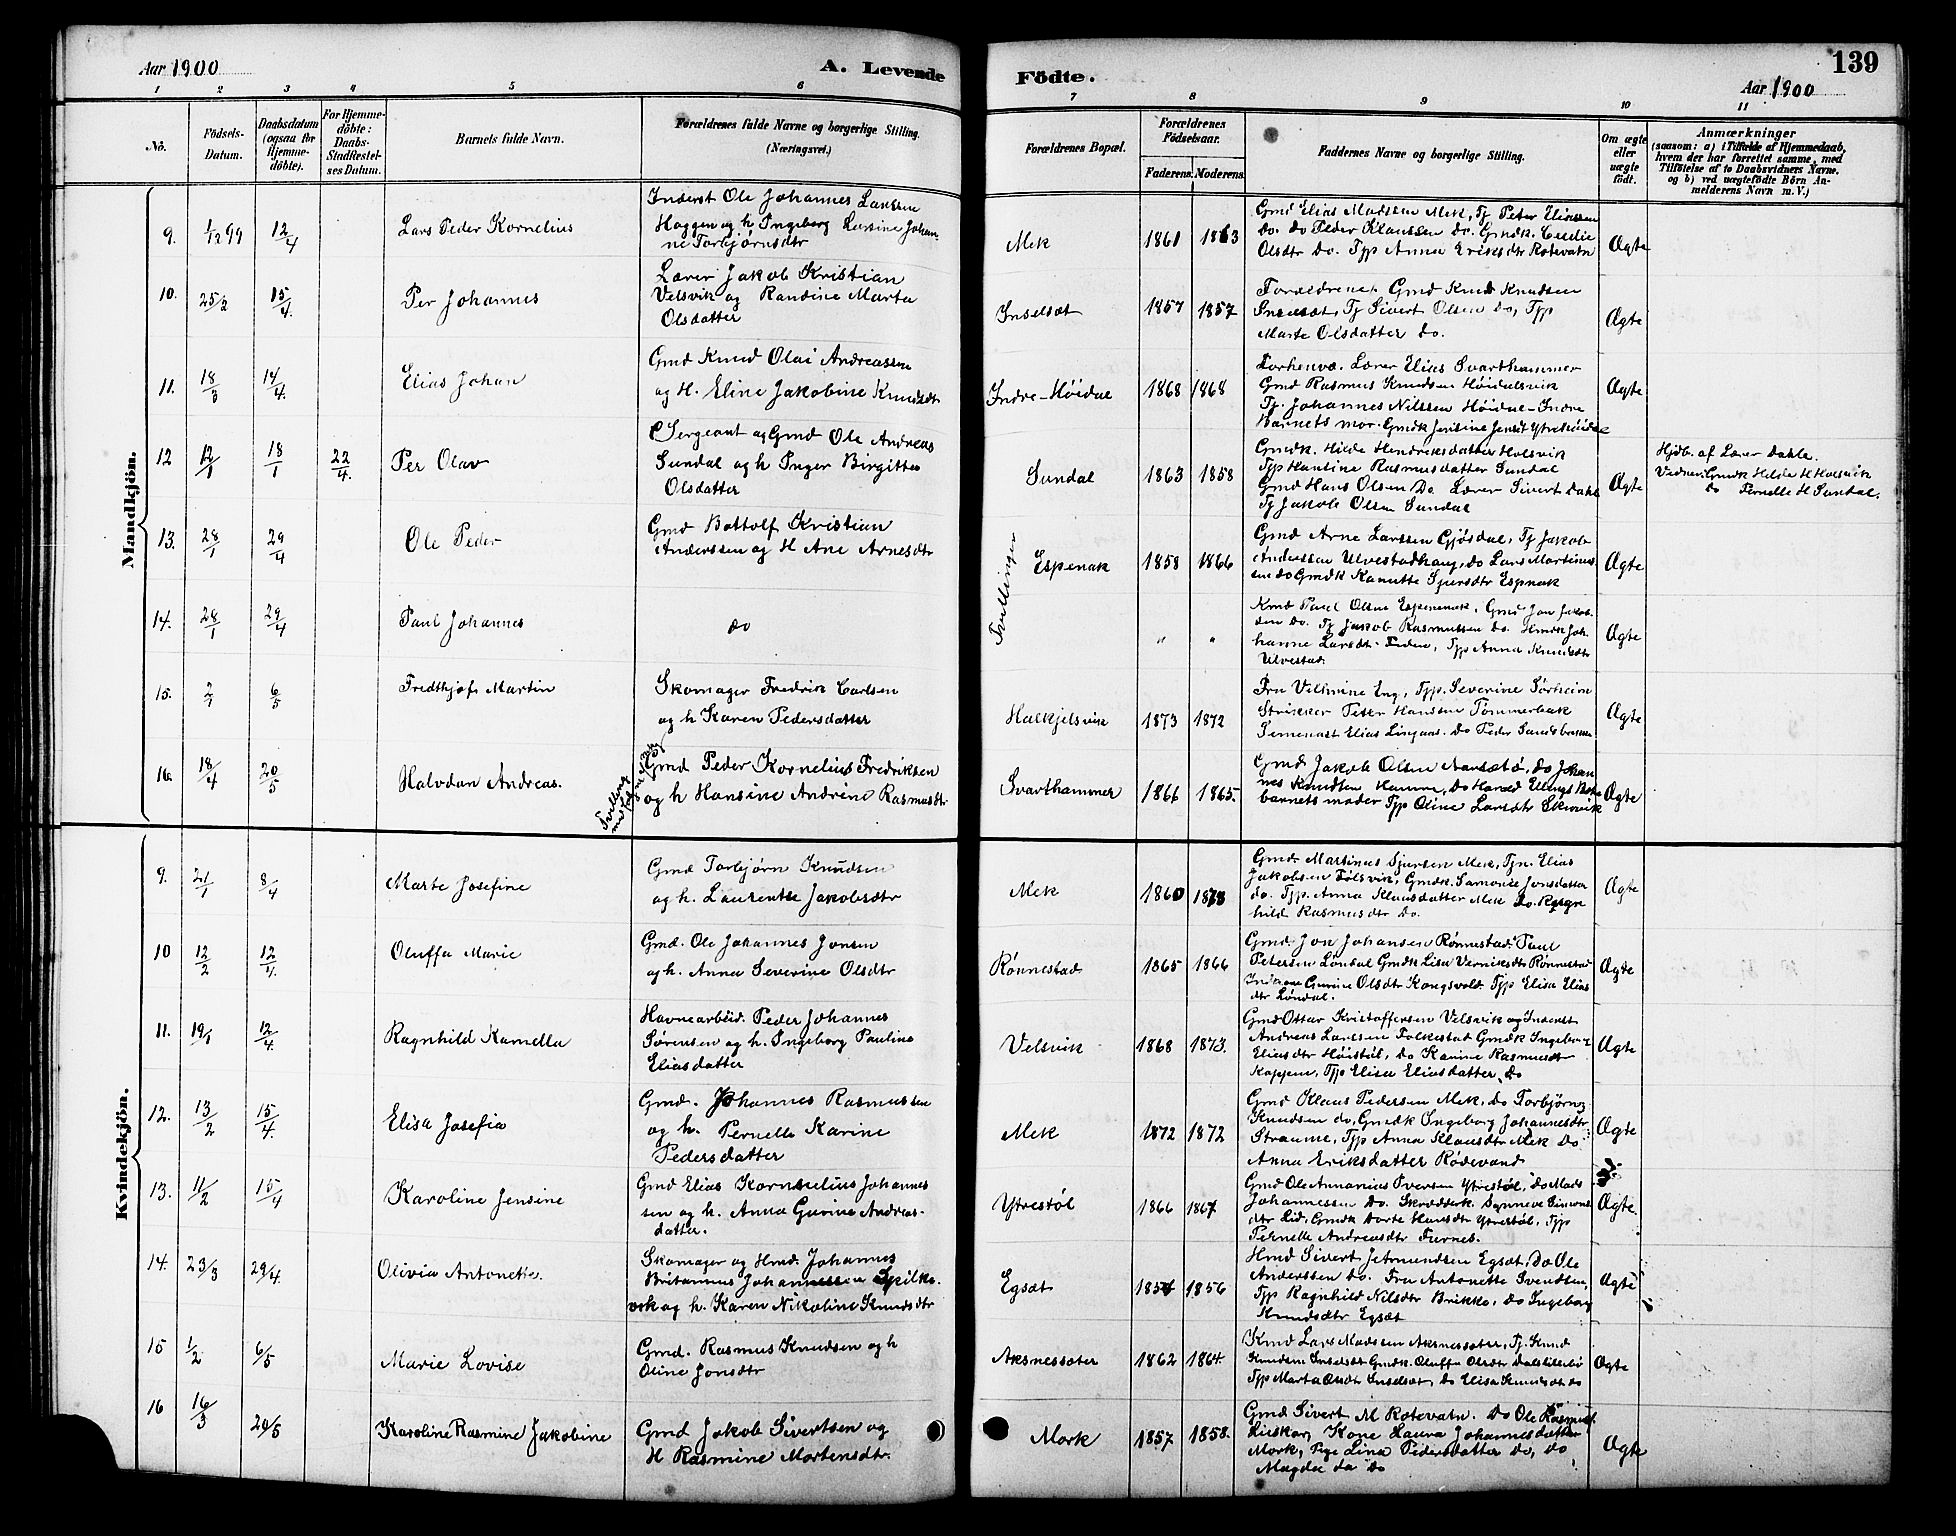 Aar 1900
A. Levende
Födte.
139
Aar 1900
1 2 3 4 5 6 7 8 9 10 11
No.
Födsels-
Datum.
Daabsdatum
(ogsaa for
Hjemme-
döbte).
For Hjemme-
döbte:
Daabs-
Stadfestel-
ses Datum.
Barnets fulde Navn.
Forældrenes fulde Navne og borgerlige Stilling.
(Næringsvei.)
Forældrenes Bopæl.
Forældrenes
Födselsaar.
Faderens. Moderens.
Faddernes Navne og borgerlige Stilling.
Om ægte
eller
uægte
födt.
Anmærkninger
(saasom: a) i Tilfælde af Hjemmedaab,
hvem der har forrettet samme, med
Tilföielse af to Daabsvidners Navne,
og b) ved uægtefödte Börn An-
melderens Navn m. V.)
Mandkjön.
9. 1/12 99 12/4 Lars Peder Kornelius
Inderst Ole Johannes Larssen
Haggen og h. Ingeborg Larsine Johan-
ne Torbjørnsdtr
Mek 1861 1863
Gmd Elias Madssen Mek, Tj Peter Eliassen
do. do Peder Klaussen do. Gmdk. Cecilie
Olsdtr do. Tjp Anna Eriksdtr Rotevatn
Ægte
10. 25/2 15/4. Per Johannes
Lærer Jakob Kristian
Velsvik og Randine Marta
Olsdatter
Inselsæt 1857 1857
Forældrene, Gmd Knud Knudsen
Inselsæt, Tj Sivert Olsen do, Tjp
Marte Olsdatter do.
Ægte
11. 18/3 14/4. Elias Johan
Gmd Knud Olai Andreassen
og H. Eline Jakobine Knudsdtr
Indre-Höidal 1868 1868
Forhenv. Lærer Elias Svarthammer
Gmd Rasmus Knudsen Höidalsvik
Tj. Johannes Nilssen Höidal-Indre
Barnets mor. Gmdk Jensine Jensdt Ytrehöidal
Ægte
12 12/1 18/1 22/4. Per Olav
Sergeant og Gmd Ole Andreas
Sundal og h Inger Birgitte
Olsdatter
Sundal 1863 1858
Gmdk. Hilde Hendriksdatter Holsvik
Tjp Hansine Rasmusdatter Sundal
Gmd Hans Olsen do. Lærer Sivert Dahle
Tj Jakob Olsen Sundal
Ægte
Hjdb. af Lærer Dahle.
Vidner: Gmdk Hilde H Holsvik
do Pernelle H Sundal.
13. 28/1 29/4 Ole Peder
Gmd Bottolf Kristian
Anderssen og H Ane Arnesdtr
Tvillinger
Espenak 1858 1866
Gmd Arne Larssen Gjösdal, Tj Jakob
Anderssen Ulvestadhaug, do Lars Martinus
sen do Gmdk Kanutte Sjursdtr Espnak
Ægte
14. 28/1 29/4 Paul Johannes
do
" "
Kmd Paul Olsen Espenak, Gmd Jon Jakob-
sen do. Tj Jakob Rasmussen do. Hmdk Joh-
hanne Larsdt Eiden, Tjp Anna Knudsdtr
Ulvestad.
Ægte
15. 2/1 6/5 Fredthjof Martin
Skomager Fredrik Carlsen
og h Karen Pedersdatter
Halkjelsvik 1873 1872
Fru Vilhmine Eng, Tjp. Severine Sørheim
Strikker Peter Hanssen Tømmerbak
Tømmermst Elias Lingaas. do Peder Sandsbakken
Ægte
16. 18/4 20/5 Halvdan Andreas.
Gmd Peder Kornelius Fredriksen
og h Hansine Andrine Rasmusdtr
Svarthammer 1866 1865.
Gmd Jakob Olsen Aarsætö, do Johan
nes Knudsen Hamre, do Harald Ellings
barnets moder Tjp Oline Larsdtr
Ægte
Kvindekjön.
9. 21/1 8/4 Marte Josefine
Gmd Torbjørn Knudsen
og h. Laurentse Jakobsdtr
Mek 1860 1873
Gmd. Martinus Sjursen Mek, Tjn. Elias
Jakobsen Folsvik, Gmdk. Samonie Jonsdatter
do. Tjp. Anna Klausdatter Mek do. Ragn-
hild Rasmusdtr do.
Ægte
10 12/2 12/4. Oluffa Marie
Gmd. Ole Johannes Jonsen
og h. Anna Severine Olsdtr
Rönnestad 1865 1866
Gmd. Jon Johansen Rönnestad. Paul
Petersen Löndal Gmdk Lisa Verniksdtr Rönnestad
Indkone Gurine Olsdtr Kongsvold. Tjp Elisa Elias
dtr Löndal.
Ægte
11. 19/1 12/4. Ragnhild Kamella
Havnearbeid. Peder Johannes
Sörensen og h. Ingeborg Pauline
Eliasdatter
Velsvik 1868 1873.
Gmd Ottar Kristoffersen Velsvik og Inderst
Andreas Larssen Folkestad Gmdk Ingeborg
Eliasdtr Höistöl, do Karine Rasmusdtr
Kappen, Tjp Elisa Eliasdatter do
Ægte
12. 13/2 15/4. Elisa Josefia
Gmd. Johannes Rasmussen
og h. Pernelle Karine
Pedersdatter
Mek 1872 1872
Gmd Klaus Pedersen Mek, do Torbjörn
Knudsen do, Gmdk Ingeborg Johannesdtr
Straume, Tjp Anna Klausdtr Mek do
Anna Eriksdatter Rödevand
Ægte
13. 11/2 15/4 Karoline Jensine
Gmd Elias Kornelius Johannes
sen og h. Anna Gurine Andreas-
datter.
Ytrestöl 1866 1867
Gmd Ole Annanias Iversen Ytrestöl, do Mads
Johannessen do. Skrædderk. Synneve Simons
dtr Lid, Gmdk Dorte Hansdtr Ytrestöl, Tjp
Pernelle Andreasdtr Furnes.
Ægte.
14. 23/3 29/4. Olivia Antonette.
Skomager og Hmd. Johannes
Britannus Johannessen Spilke-
vik og h. Karen Nikoline Knudsdtr
Egsæt 1854 1856
Hmd Sivert Jetmundsen Egsæt, do Ole
Anderssen do. Fru Antonette Svendsen,
Tjp Ragnhild Nilsdtr Brikke, do Ingeborg
Knudsdtr Egsæt
Ægte
15 1/2 6/5 Marie Lovise
Gmd. Rasmus Knudsen og h
Oline Jonsdtr
Aksnessæter 1862 1864.
Kmd Lars Madssen Aksnessæter, Tj. Knud
Knudsen Inselsæt Gmdk. Oluffa Olsdtr
Tjp Marta Olsdtr Inselsæt, do Elisa Knudsdt do
Ægte
16 16/3 20/5 Karoline Rasmine Jakobine
Gmd Jakob Sivertsen og
H Rasmine Mortensdtr.
Mork 1857 1858.
Gmd Sivert M Rotevatn. do Ole Rasmus
Liaskar, Kone Laura Johannesdatter
Mork, Pige Lina Pedersdatter do, do
Magda do do
Ægte